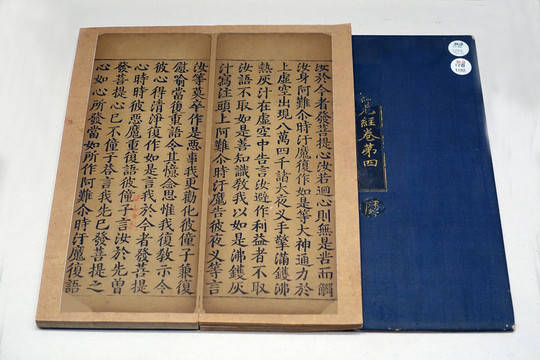 汝於今者發菩提心汝若迴心則無是苦而觸
汝身阿難尒時汙魔復作如是等大神通力於
上虛空出現八萬四千諸大夜叉手擎滿鑊沸
熱灰汁在虛空中告言汝避作利益者不取
汝語不取如是善知識教我以如是沸鑊灰
汁寫注頭上阿難尒時汙魔告彼夜叉等言
汝等莫卒作是惡事我更勸化彼僮子兼復
慰喻當復重語令其憶念思惟我復教示令
彼心得清淨復作如是言我於今者發菩提
心時時彼惡魔重復語彼僮子言汝於先曾
發菩提心已不僮子荅言我先已發菩提之
心如心所發當如所作阿難尒時汙魔復語
經卷第四